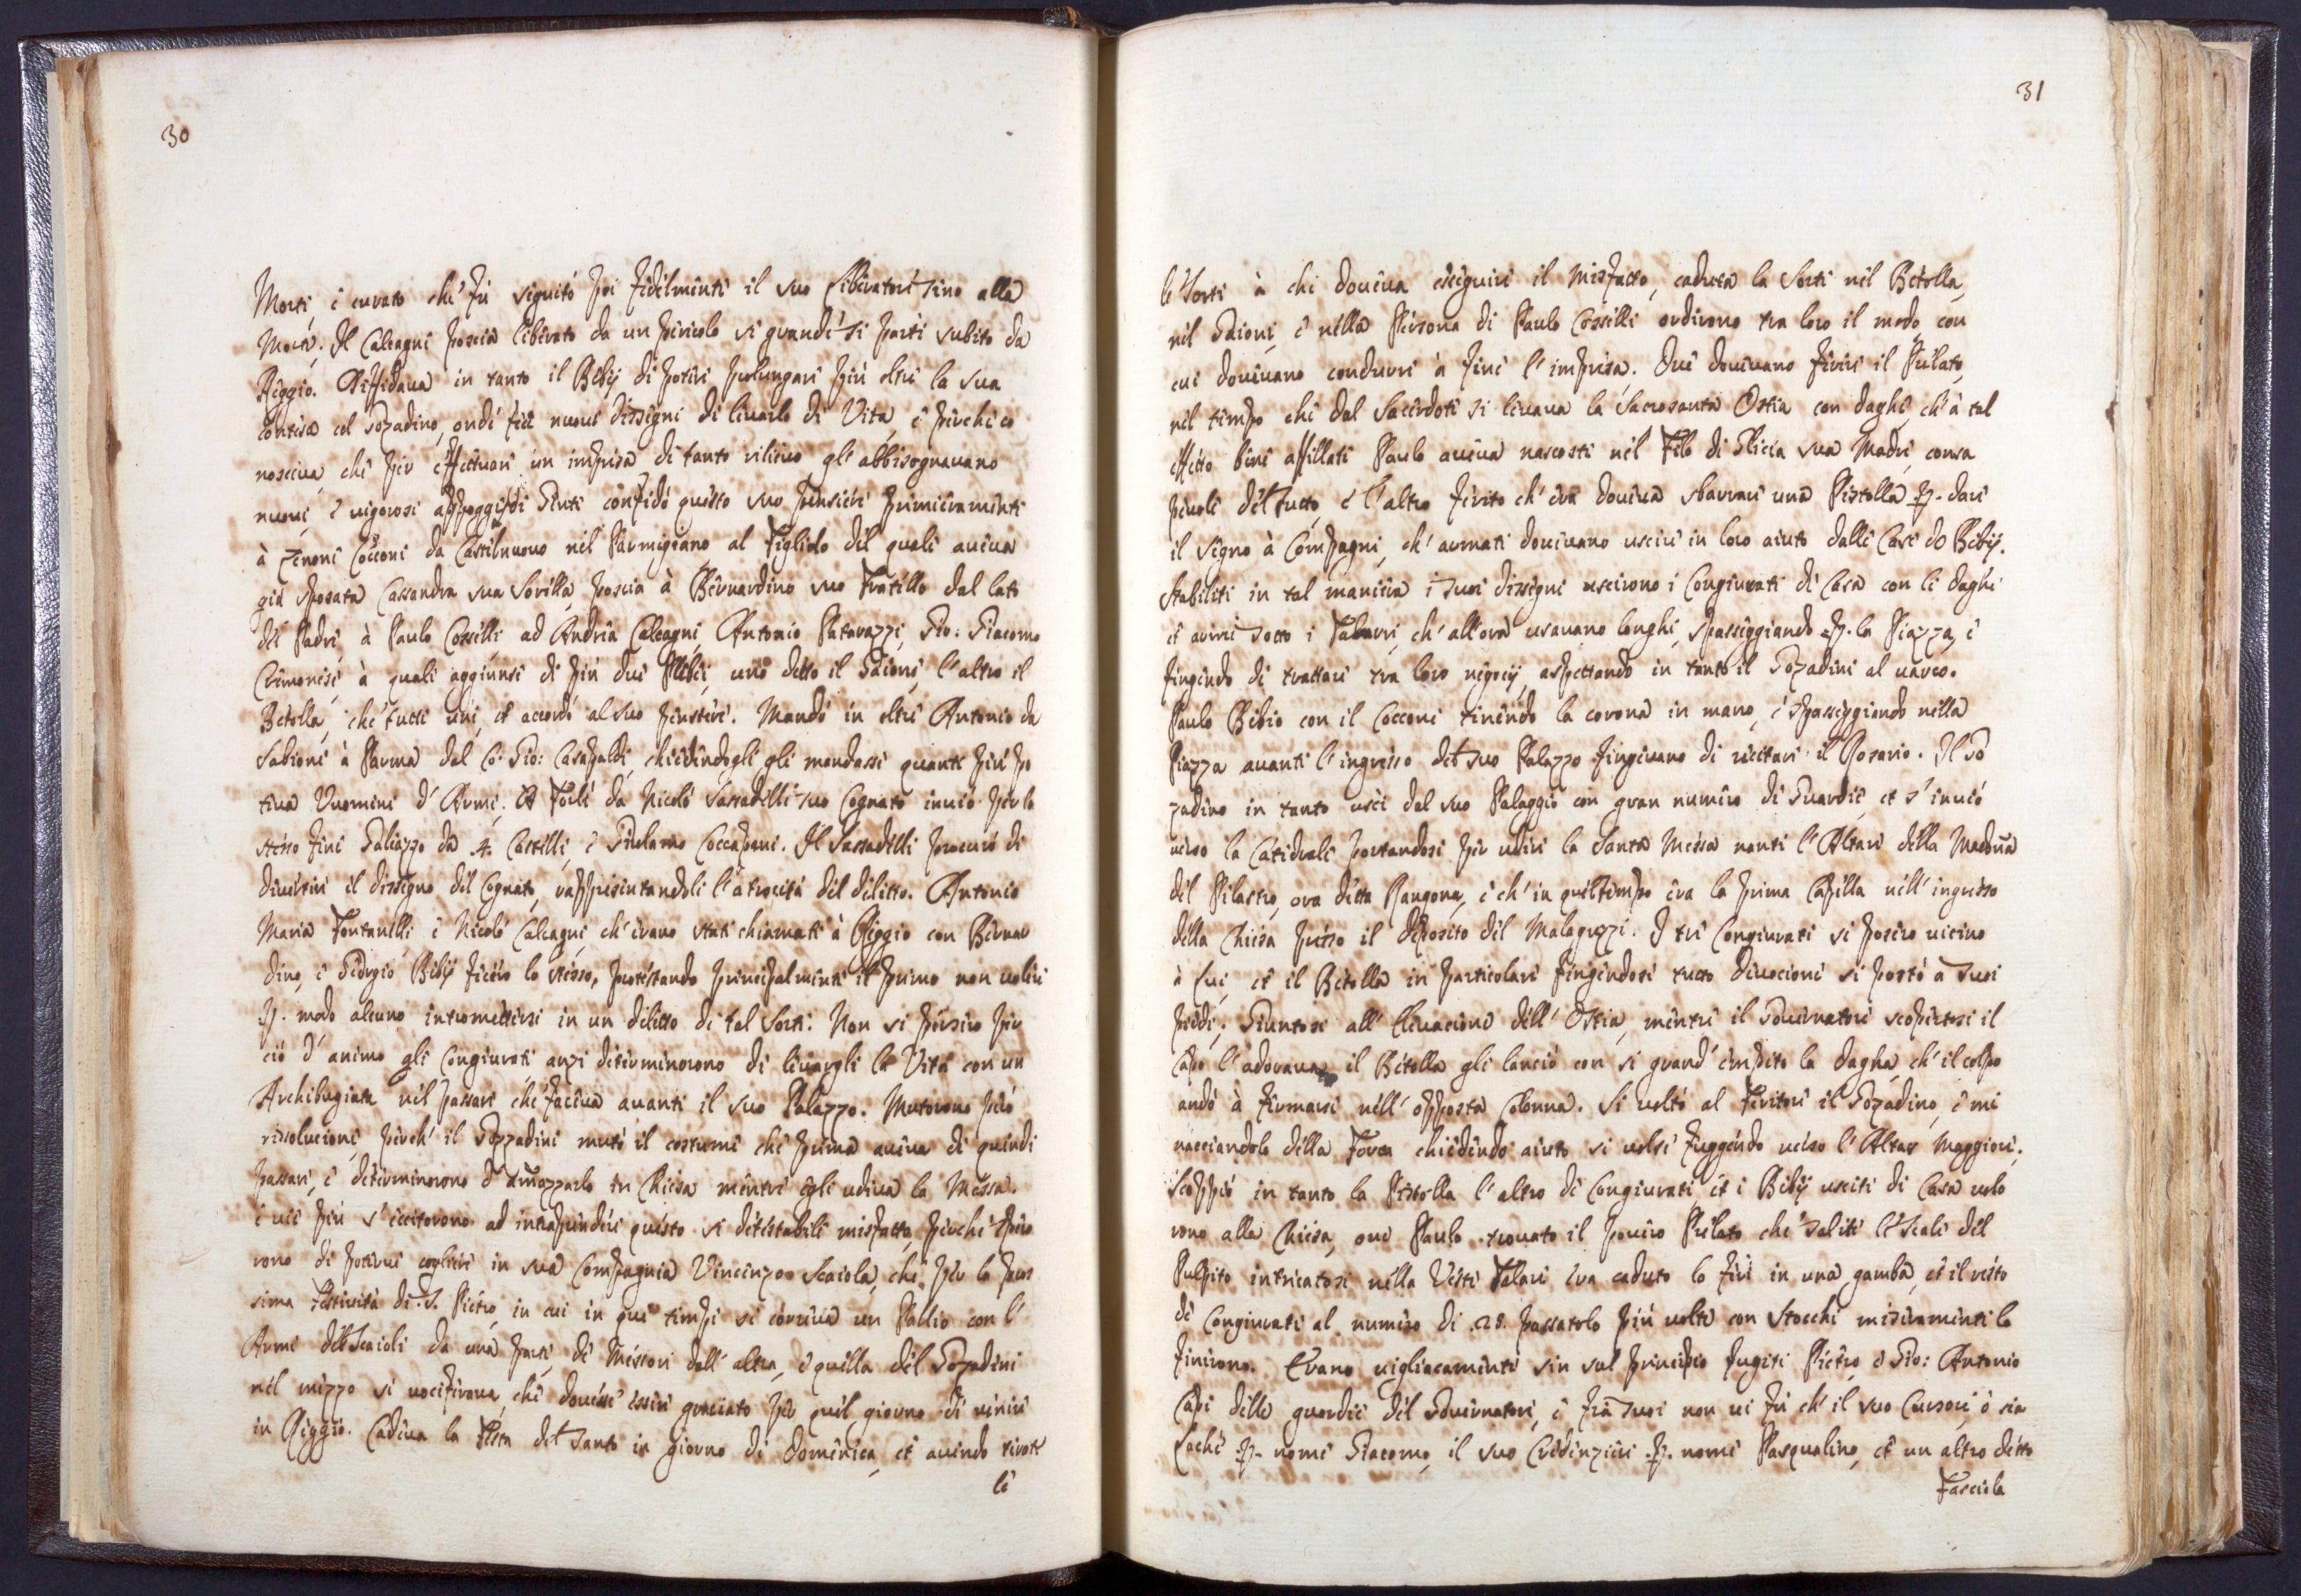 30
Morti, e curato che fù seguitò poi fedelmente il suo Liberatore sino alla
Morte. Il Calcagni poscia liberato da un pericolo si grande si partì subito da
Reggio. Diffidava in tanto il Bebij di potere prolungare più oltre la sua
contesa col Gozadino, onde fece nuovi dissegni di levarlo di Vita, e perche co
nosceva che per effettuare un impresa di tanto rilievo gl' abbisognavano
nuovi, e vigorosi appoggi di Genti confidò questo suo pensiere primieramente
à Zenone Cocconi da Castelnuovo nel Parmigiano al Figliolo del quale aveva
già sposata Cassandra sua Sorella, poscia à Bernardino suo Fratello dal lato
del Padre, à Paulo Cosselli, ad Andrea Calcagni, Antonio Patarazzi, Gio: Giacomo
Cremonesi, à quali aggiunse di più due Plebei, uno detto il Gaione, l'altro il
Betolla, che tutti unì, et accordò al suo pensiere. Mandò in oltre Antonio da
Sabione à Parma dal Co: Gio: Casapaldi, chiedendogli gli mandasse quanti più po
teva Uuomini d' Armi. Et Forlì da Nicolò Sassadelli suo Cognato inviò per lo
stesso fine Galeazzo da 4. Castelli, e Girolamo Coccapani. Il Sassadelli procurò di
divertire il dissegno del Cognato, rappresentandoli l'atrocità del delitto. Antonio
Maria Fontanelli, e Nicolò Calcagni, ch' erano stati chiamati à Reggio con Bernar
dino, e Giorgio Bebij fecero lo stesso, protestando principalmente il primo non volere
p. modo alcuno intromettersi in un delitto di tal sorte. Non si persero per
ciò d' animo gli Congiurati anzi determinorono di levargli la Vita con un
Archibugiata nel passare che faceva avanti il suo Palazzo. Mutorono però
rissolucione, perch' il Gozzadini mutò il costume che prima aveva di quindi
passare, e determinorono d' amazzarlo in Chiesa mentre egli udiva la Messa.
e vie più s' eccitorono ad intraprendere questo si detestabile misfatto, perche spera
vono di potervi cogliere in sua Compagnia Vincenzo Scaiola, che per la pros
sima Festività di S. Pietro, in cui in que' tempi si correva un Pallio con l'
Armi del Scaioli da una parte, de Messori dall' altra, e quella del Gozadini
nel mezzo si vociferava, che dovesse essere graciato per quel giorno di venire
in Reggio. Cadeva la Festa del Santo in giorno di Domenica, et avendo tirate
le
31
le Sorti à chi doveva esseguire il misfatto, caduta la Sorte nel Betolla,
nel Gaione, e nella Persona di Paulo Cosselli ordirono tra loro il modo, con
cui dovevano condurre à fine l'impresa. Due dovevano ferire il Prelato,
nel tempo che dal Sacerdote si levava la Sacrosanta Ostia con daghe, ch' à tal
effetto bene affillate Paulo aveva nascosti nel Filo di Glicia sua Madre, consa
pevole del tutto, e l'altro ferito ch' era doveva sbarrare una Pistolla p. dare
il segno à Compagni, ch' armati dovevano uscire in loro aiuto dalle Case de Bebij.
Stabiliti in tal maniera i suoi dissegni uscirono i Congiurati di Casa con le daghe
et armi sotto i Tabarri, ch' all' ora usavano longhi, spasseggiando p. la Piazza, e
fingendo di trattare tra loro negocij, aspettando in tanto il Gozadini al varco.
Paulo Bebio con il Cocconi tenendo la corona in mano, e spasseggiando nella
Piazza avanti l'ingresso del suo Palazzo fingevano di recitare il Rosario. Il Go
zadino in tanto uscì dal suo Palaggio con gran numero di Guardie, et s' inviò
verso la Catedrale portandosi per udire la Santa Messa nanti l'Altare della Madona
del Pilastro, ora detta Rangona, e ch' in quel tempo era la prima Capella nell' ingresso
della Chiesa presso il deposito del Malaguzzi. I tre Congiurati si posero vicino
à lui, et il Betolla in particolare fingendosi tutto divocione si portò a suoi
piedi. Giuntosi all' Elevacione dell' Ostia, mentre il Governatore scopertosi il
Capo l'adorava, il Betolla gli lanciò con si grand' empito la dagha, ch' il colpo
andò à fermarsi nell' opposta Colonna. Si voltò al Feritore il Gozadino, e mi
nacciandolo della Forca chiedendo aiuto si volse fuggendo verso l'Altar Maggiore.
Scoppiò in tanto la Pistolla l'altro de Congiurati, et i Bebij usciti di Casa volo
rono alla Chiesa, ove Paulo trovato il povero Prelato che salite le scale del
Pulpito intricatosi nella Veste Talare era caduto lo ferì in una gamba, et il resto
de Congiurati al numero di 28. passatolo più volte con Stocchi miseramente lo
finirono. Erano vigliacamente sin sul principio fugiti Pietro, e Gio: Antonio
Capi delle guardie del Governatore, e frà suoi non vi fù ch' il suo Cursore ò sia
Lachè p. nome Giacomo, il suo Credenziere p. nome Pasqualino, et un altro detto
Fasciola